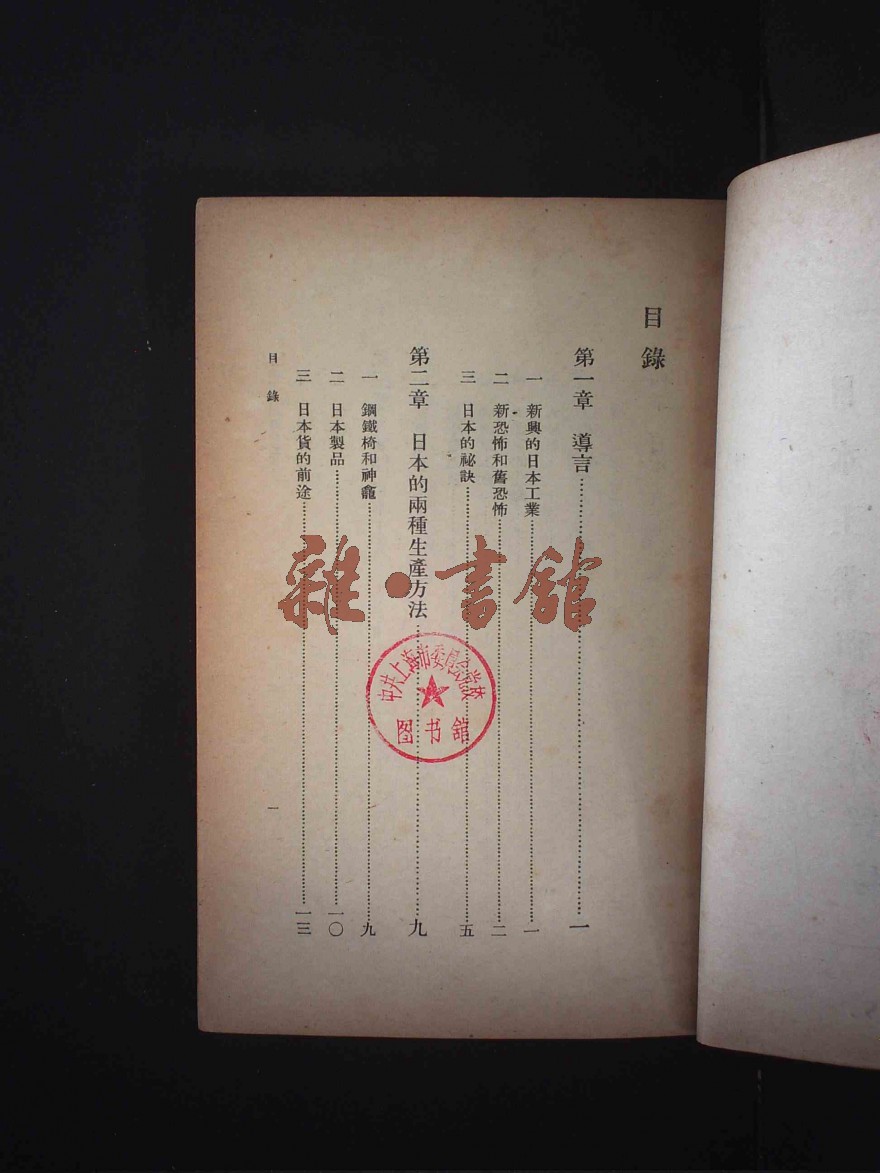 目錄
第一章 導言……一
一 新興的日本工業……一
二 新恐怖和舊恐怖……二
三 日本的祕訣……五
第二章 日本的兩種生產方法……九
一 鋼鐵椅和神龕……九
二 日本製品……一〇
三 日本貨的前途……一三
目錄
一
雜·書館
中共上海市委員会党校
图书舘